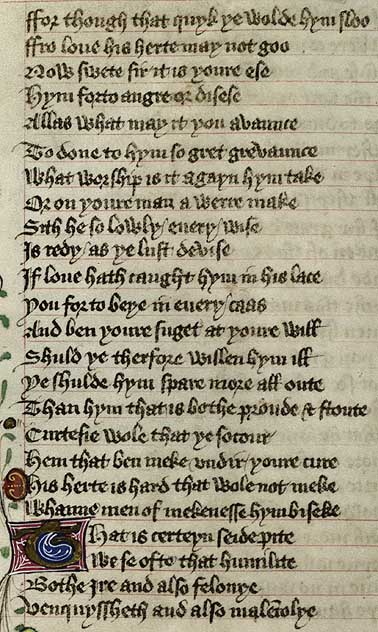 ffor though that quyk ye wolde hym sloo
ffro loue his herte may not goo
Now swete sir it is youre ese
Hym forto angre or disese
Allas what may it you auaunce
To done to hym so gret greuaunce
What worship is it agayn hym take
Or on youre man a werre make
Sith he so lowly / euery / wise
Is redy / as ye lust deuise
If loue hath caught hym in his lace
You for to beye in euery / caas
And ben youre suget at youre will
Shuld ye therfore willen hym ill
Ye shulde hym spare more all oute
Than hym that is bothe proude & stoute
Curtesie wole that ye socour
Hem that ben meke vndir youre cure
His herte is hard that wole not meke
Whanne men of mekenesse hym biseke
That is certeyn seide pite
We se ofte that humilite
Bothe Ire and also felonye
Venquyssheth and also malecolye